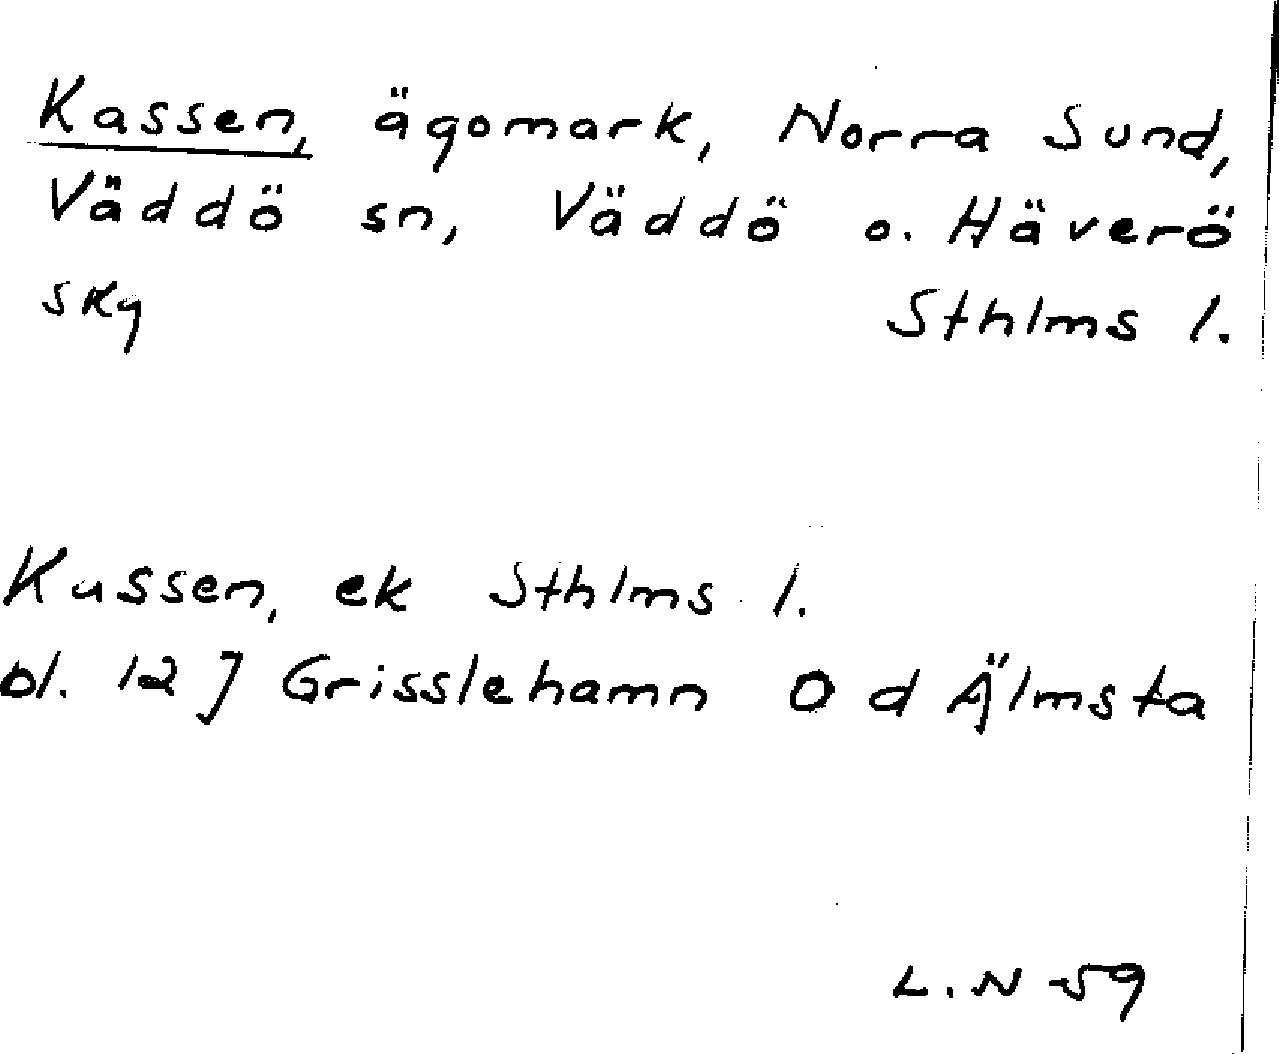 Kassen, ägomark, Norra Sund,
Väddö sn, Väddö o. Häverö
skg Sthlms l.
Kassen, ek Sthlms l.
bl. 12 J Grisslehamn O d Älmsta
L.N 59